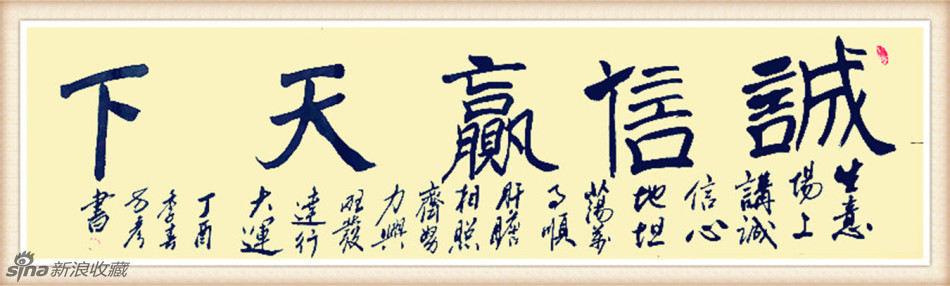 誠信贏天下
生意
場上
講誠
信心
地坦
蕩萬
事順
肝膽
相照
齊努
力興
旺發
達行
大運
丁酉
季春
書
sina新浪收藏